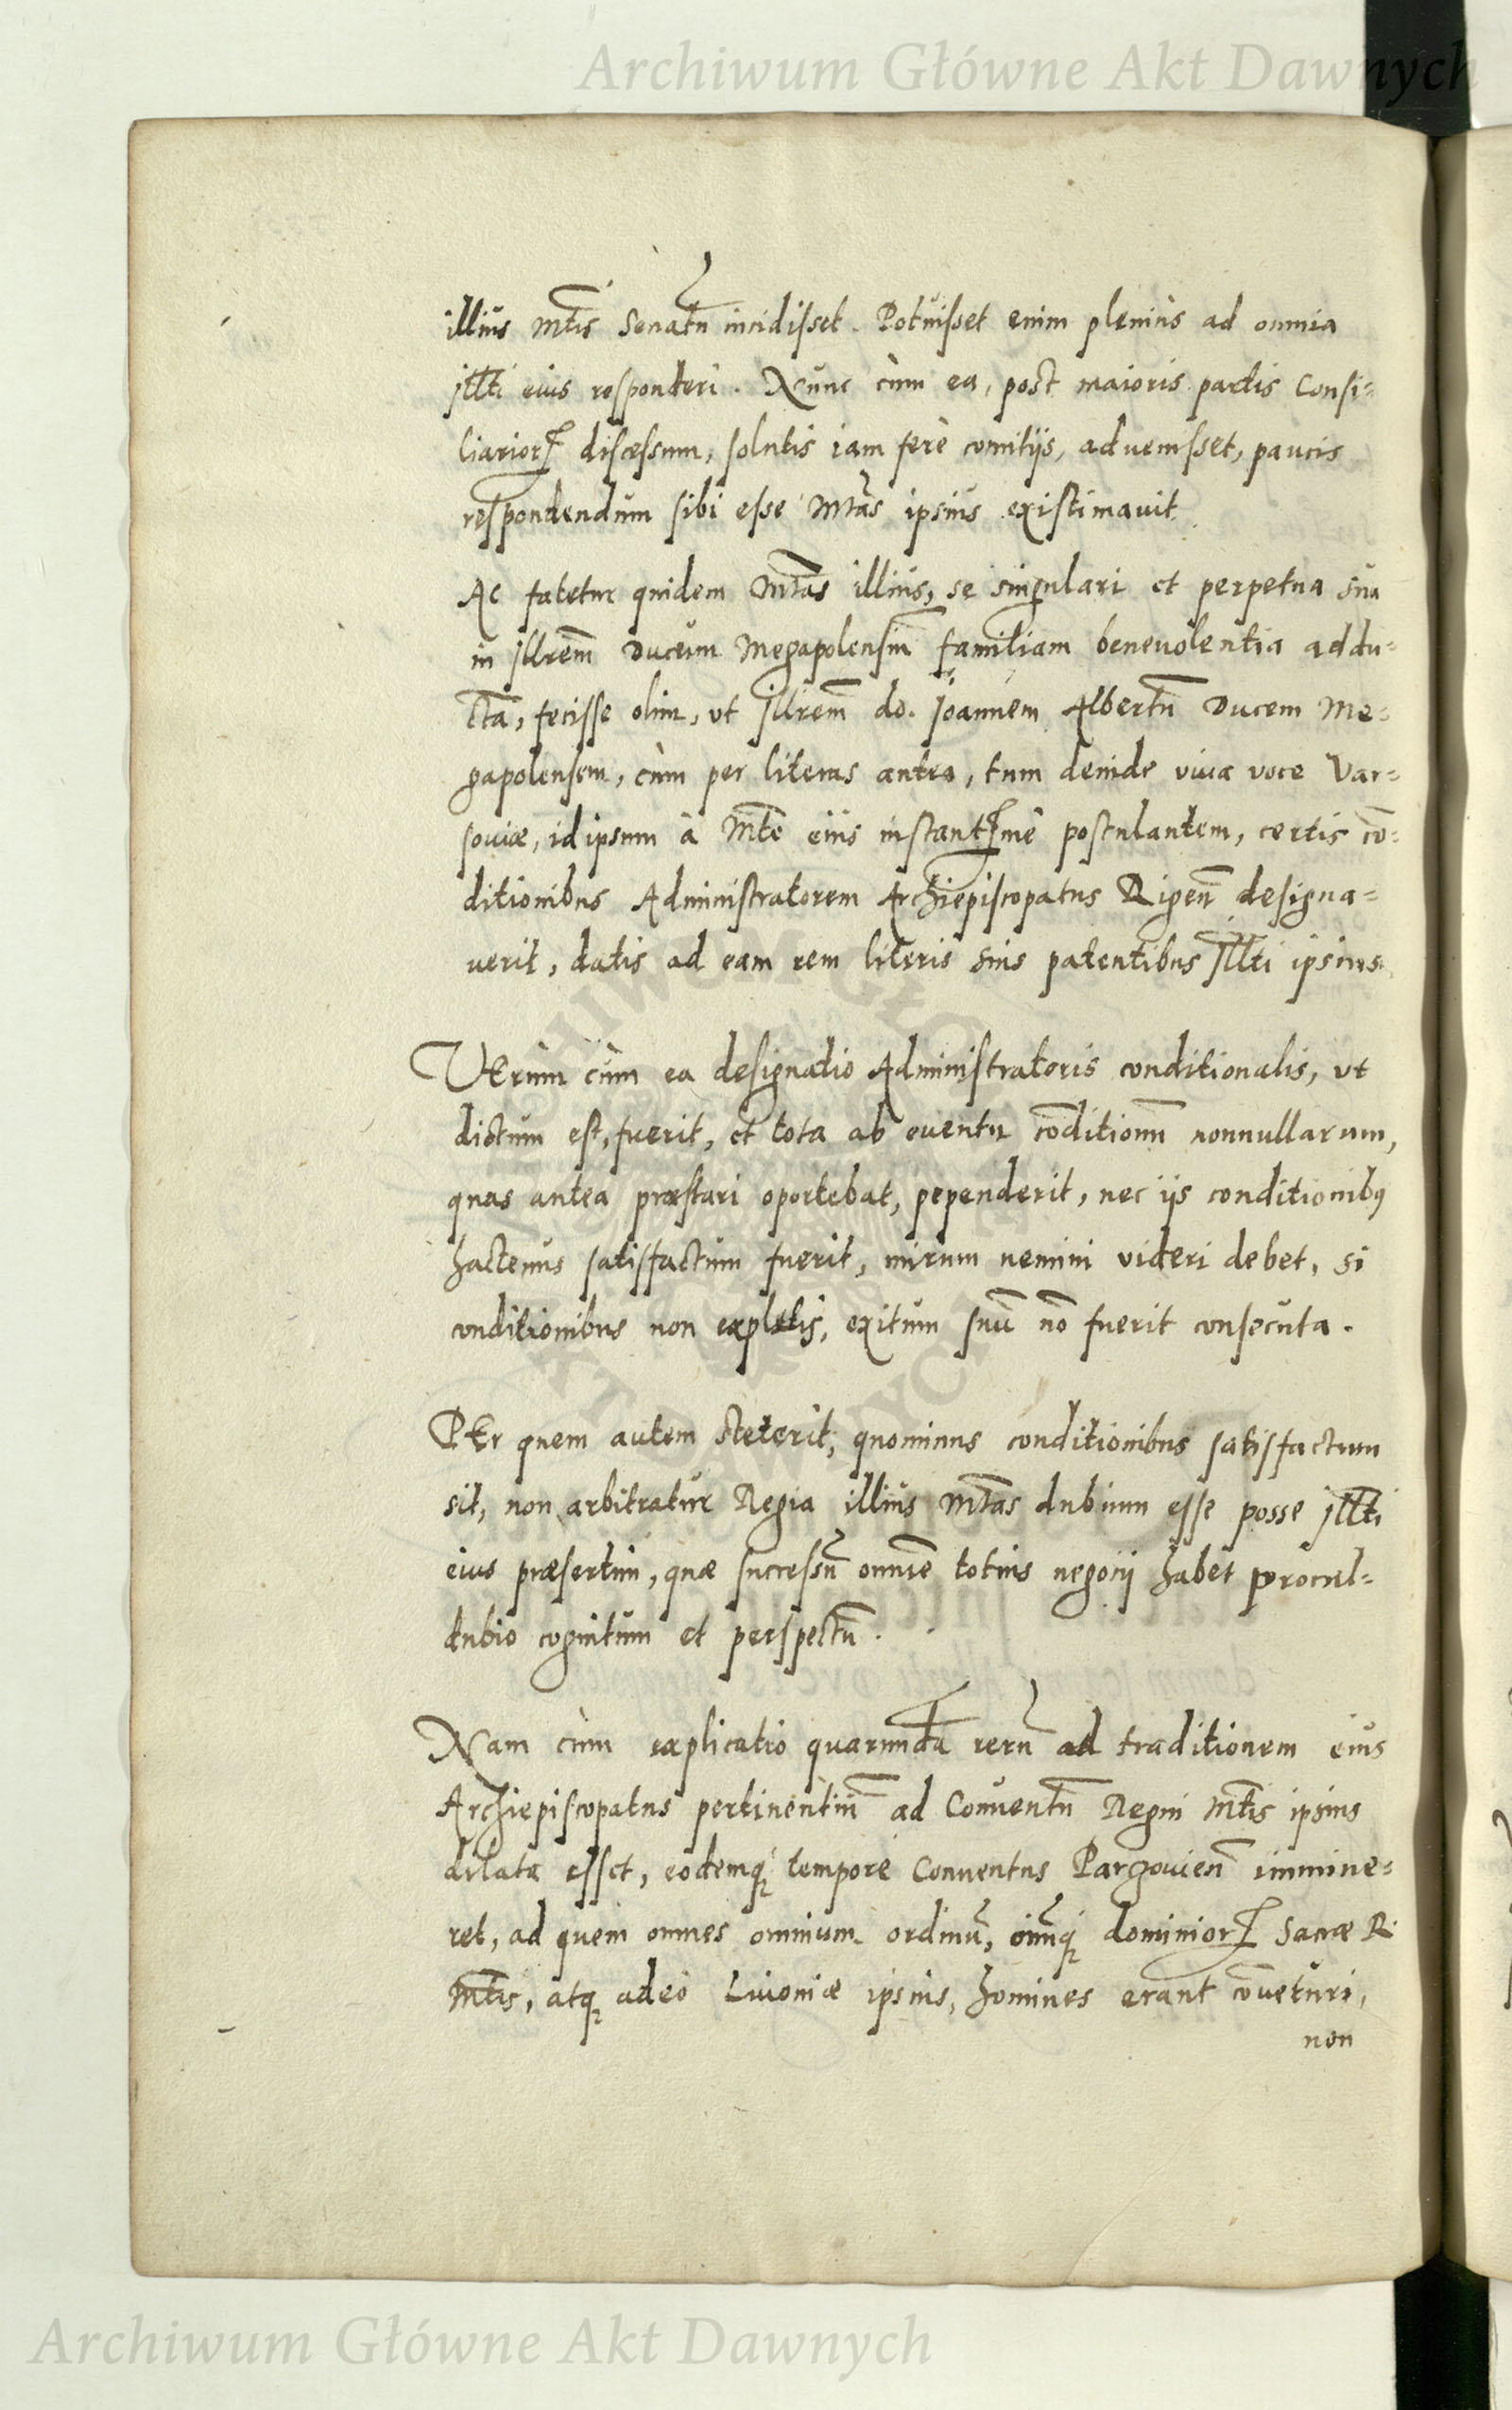 Archiwum Główne Akt Dawnych
illius Mtis Senatū incidisset. Potuisset enim plenius ad omnia
Jllti eius responderi. Nunc cùm ea, post maioris partis Consi=
liarioꝝ discessum, solutis iam ferè comitijs, aduenisset, paucis
respondendum sibi esse Mtas ipsius existimauit.
Ac fatetur quidem Mtas illius, se singulari et perpetua sua
in Jllrem̄ Ducum Megapolensiū familiam beneuolentia addu=
ctā, fecisse olim, vt Jllrem̄ do. Joannem Albertū Ducem Me=
gapolensem, cùm per literas antea, tum deinde viua voce Var=
souiæ, id ipsum à Mte eius instantꝝmè postulantem, certis cō=
ditionibus Administratorem Archiepiscopatus Rigen̄ designa=
uerit, datis ad eam rem literis suis patentibus Jllti ipsius.
VErùm cùm ea designatio Administratoris conditionalis, vt
dictum est, fuerit, et tota ab euentu cōditionū nonnullarum,
quas antea præstari oportebat, pependerit, nec ijs conditionibꝰ
hactenus satisfactum fuerit, mirum nemini videri debet, si
conditionibus non expletis, exitum suū nō fuerit consecuta.
PEr quem autem steterit, quominus conditionibus satisfactum
sit, non arbitratur Regia illius Mtas dubium esse posse Jllti
eius præsertim, quæ successū omnē totius negocij habet procul=
dubio cognitum et perspectū.
Nam cùm explicatio quarundā rerū ad traditionem eius
Archiepiscopatus pertinentiū ad Conuentū Regni Mtis ipsius
dilata esset, eodemqꝫ tempore Conuentus Parzouien̄ immine=
ret, ad quem omnes omnium ordinū, oīmqꝫ dominioꝝ Sacræ R.
Mtis, atqꝫ adeò Liuoniæ ipsius, homines erant cōuēturi,
non
Archiwum Główne Akt Dawnych